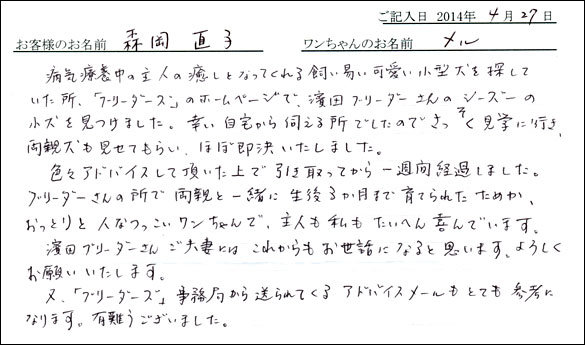 ご記入日 2014年 4月 27日
お客様のお名前 森岡 直子 ワンちゃんのお名前 メル
病気療養中の主人の癒しとなってくれる飼い易い可愛い小型犬を探して
いた所、「ブリーダーズ」のホームページで、濱田ブリーダーさんのシーズーの
小犬を見つけました。幸い自宅から伺える所でしたのでさっそく見学に行き、
両親犬も見せてもらい、ほぼ即決いたしました。
色々アドバイスして頂いた上で引き取ってから一週間経過しました。
ブリーダーさんの所で両親と一緒に生後3か月まで育てられたためか、
おっとりと人なつっこいワンちゃんで、主人も私もたいへん喜んでいます。
濱田ブリーダーさんご夫妻にはこれからもお世話になると思います。よろしく
お願いいたします。
又、「ブリーダーズ」事務局から送られてくるアドバイスメールもとても参考に
なります。有難うございました。